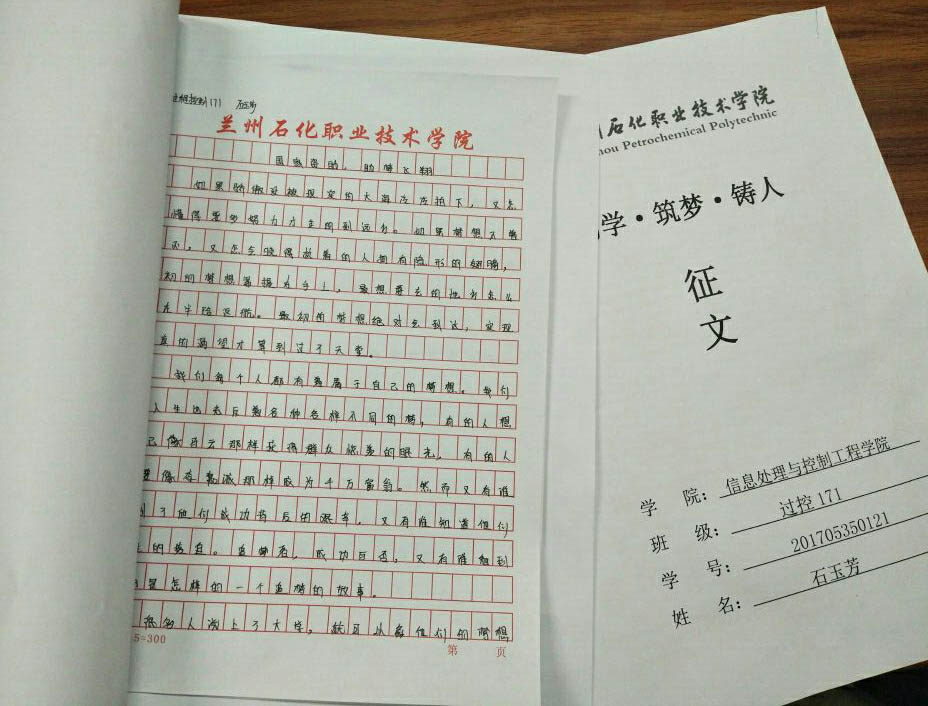 过程控制171 石玉芳
兰州石化职业技术学院
国家资助,助梦飞翔
如果骄傲没被现实的大海冷冷拍下,又怎
懂得要多努力才走得到远方。如果梦想不曾
又怎会晓得执着的人拥有隐形的翅膀,
初的梦想紧握在手上,最想要去的地方怎么
在半路返航。最初的梦想绝对会到达,实现
真的渴望才算到过了天堂。
我们每个人都有着属于自己的梦想。我们
人生也充斥着各种各样不同的梦,有的人想
己像那样获得群众羡的眼光,有的人
像李嘉诚那样成为千万富翁。然而又有谁
到了他们成功背后的艰辛,又有谁知道他们
的。成功与否,又有谁想到
是怎样的一个追梦的故事。
很多人考上了大学,就可以离他们的梦想
5=300
第 页
石化职业技术学院
hou Petrochemical Polytechnic
学·筑梦·铸人
征
文
学 院: 信息处理与控制工程学院
班 级: 过控171
学 号: 201705350121
姓 名: 石玉芳